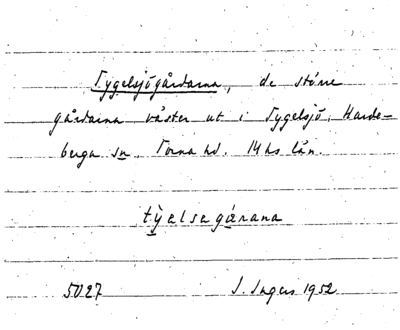 Tygelsjögårdarna, de större
gårdarna väster ut i Tygelsjö, Harde-
berga sn. Torna hd. M hs län.
tyelsegårana
5027 I. Ingers 1952